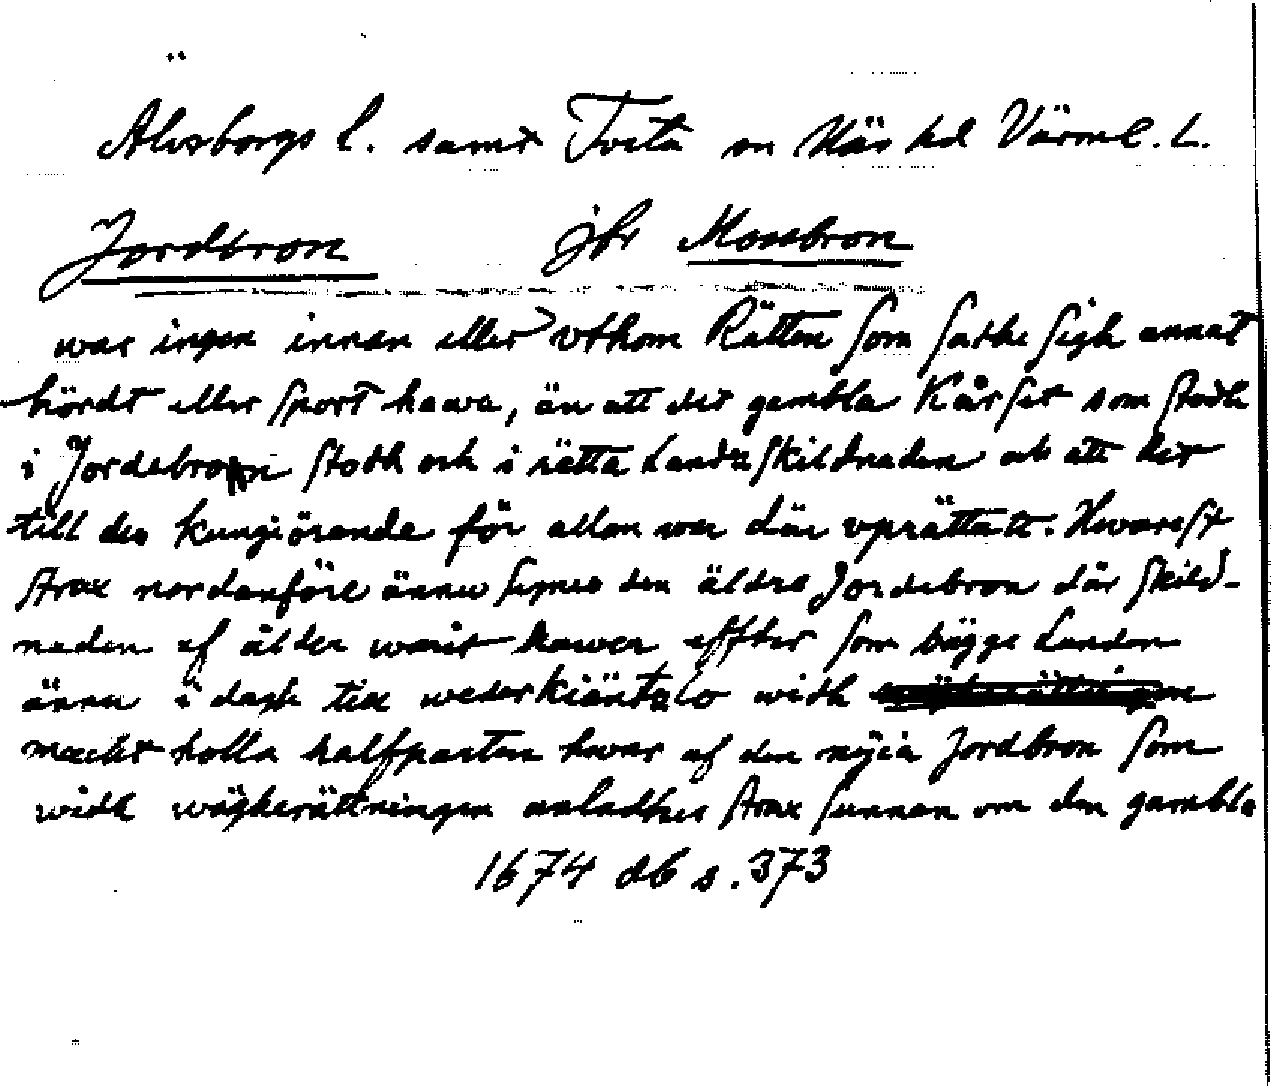 Älvsborgs l. samt Tveta sn Näs hd Värml. L.
Jordbron jfr Mossbron
war ingen innan eller vthom Rätten som sadhe sigh annat
hördt eller sport hawa, än att det gambla Kårset som stodh
i Jordebron stodh och i rätta Landzskildnaden och att det
till des kungiörande för allom war där vprättatt. Hwarest
strax nordanföre ännu synes den äldre Jordebron där skild-
naden af ålder warit hawer effter som bägge Landen
ännu i dagh till wederkiäntzlo widh
macht holla halfparten hwar af den nyia Jordbron som
widh wägherättningen anladhes strax sunnan om den gambla
1674 db s. 373